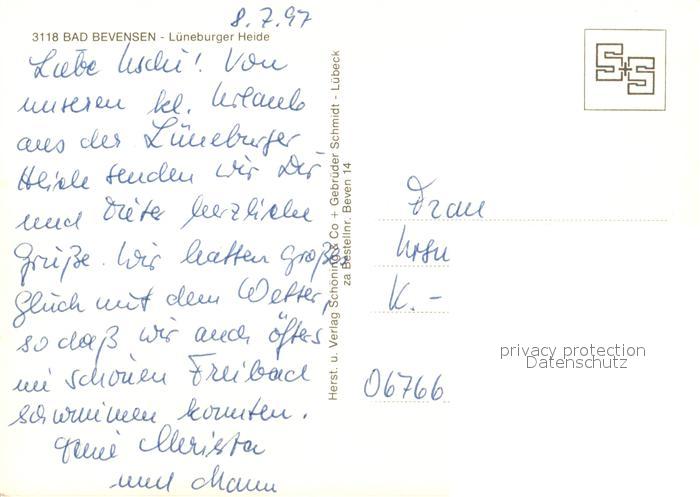 8.7.97
3118 BAD BEVENSEN - Lüneburger Heide
Liebe Uschi! Von
unseren kl. Urlaub
aus der Lüneburger
Heide senden wir Dir
und Dieter herzliche
Grüße. Wir hatten großes
Glück mit dem Wetter,
so daß wir auch öfters
im schönen Freibad
schwimmen konnten.
Christa
und Mann
Herst. u. Verlag Schöning & Co + Gebrüder Schmidt - Lübeck
za Bestellnr. Beven 14
S+S
Frau
K. -
06766
privacy protection
Datenschutz